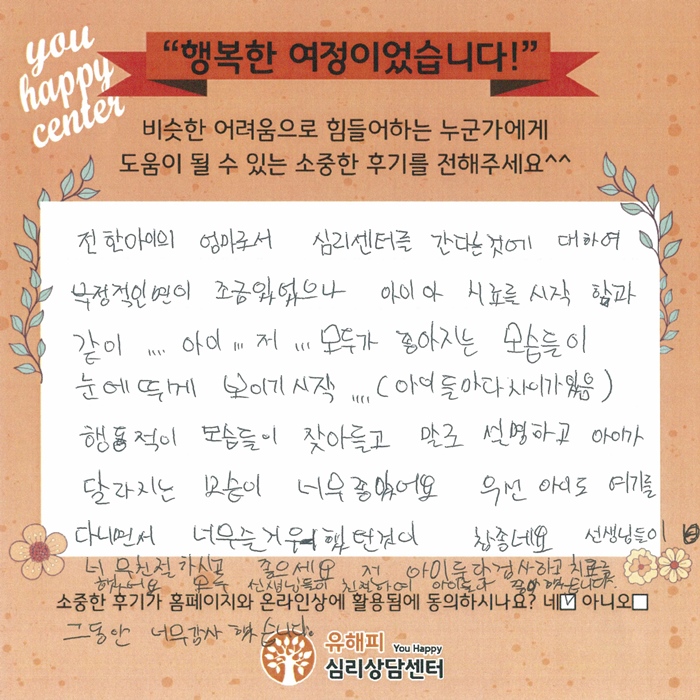 you
happy
center
“행복한 여정이었습니다!”
비슷한 어려움으로 힘들어하는 누군가에게
도움이 될 수 있는 소중한 후기를 전해주세요^^
전 한아이의 엄마로서 심리센터를 간다는것에 대하여
부정적인면이 조금있었으나 아이와 치료를 시작 함과
같이 .... 아이 ... 저 ... 모두가 좋아지는 모습들이
눈에 띄게 보이기 시작 .... (아이들마다 차이가있음)
행동적이 모습들이 잦아들고 말로 설명하고 아이가
달라지는 모습이 너무좋았어요 우선 아이도 여기를
다니면서 너무즐거워했던것이 참좋네요 선생님들이
너무친절하시고 좋으세요 저 아이둘다검사하고 치료를
했어요 모두 선생님들과 친절하여 아이들이
소중한 후기가 홈페이지와 온라인상에 활용됨에 동의하시나요? 네☑ 아니오☐
그동안 너무감사 했습니다.
유해피 You Happy
심리상담센터